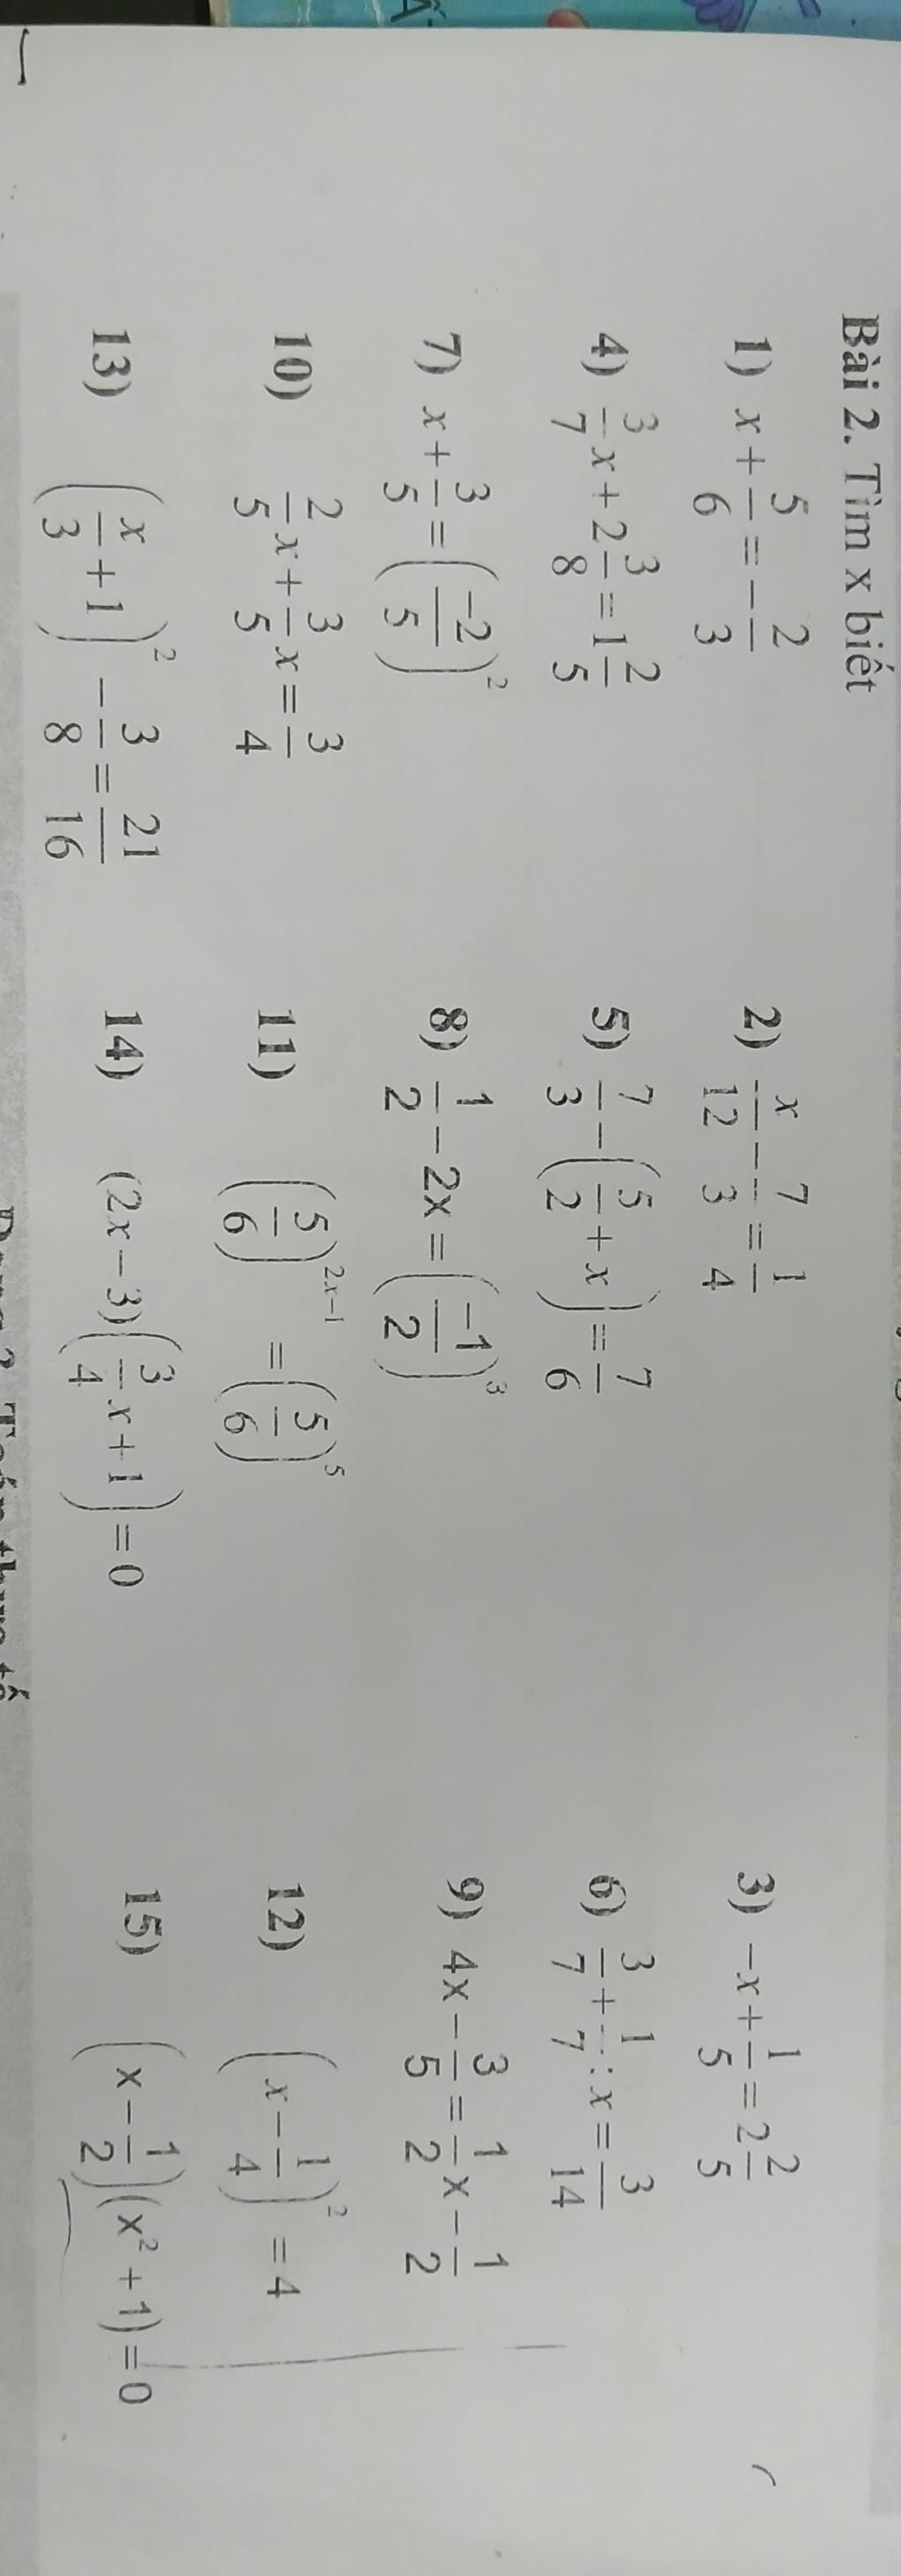 Bài 2. Tìm x biết
1) x + 5/6 = -2/3 2) x/12 - 7/3 = 1/4 3) -x + 1/5 = 2 2/5
4) 3/7 x + 2 3/8 = 1 2/5 5) 7/3 - (5/2 + x) = 7/6 6) 3/7 + 1/7 : x = 3/14
7) x + 3/5 = (-2/5)² 8) 1/2 - 2x = (-1/2)³ 9) 4x - 3/5 = 1/2 x - 1/2
10) 2/5 x + 3/5 x = 3/4 11) (5/6)^(2x-1) = (5/6)^5 12) (x - 1/4)² = 4
13) (x/3 + 1)² - 3/8 = 21/16 14) (2x - 3)(3/4 x + 1) = 0 15) (x - 1/2)(x² + 1) = 0